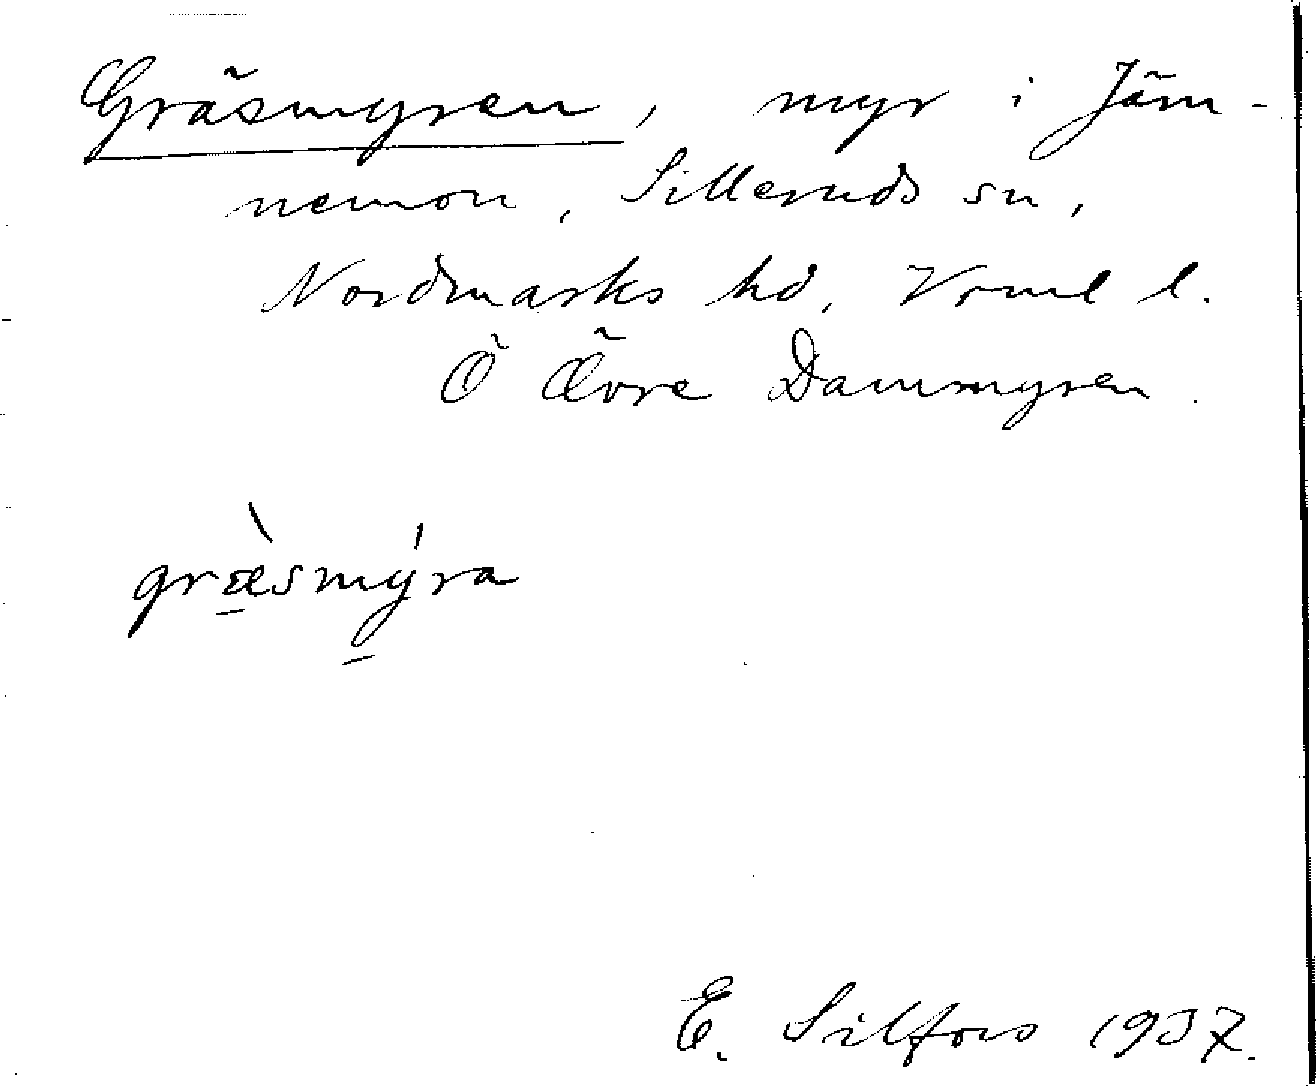 Gräsmyren, myr i Jäm-
nemon, Silleruds sn,
Nordmarks hd, Vrml l.
Ö Övre Dammyren.
græ̀smýra
E. Silfors 1937.